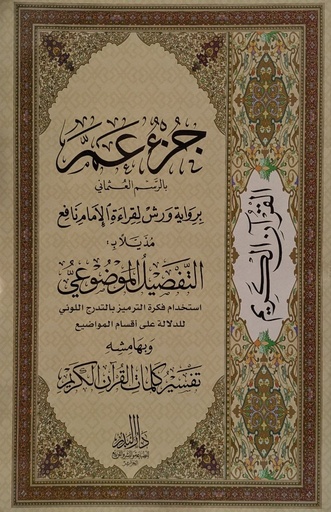 جزء عمّ
بالرسم العثماني
برواية ورش لقراءة الإمام نافع
مذيلا بـ:
التفصيل الموضوعي
استخدام فكرة الترميز بالتدرج اللوني
للدلالة على أقسام المواضيع
وبهامشه
تفسير كلمات القرآن الكريم
القرآن الكريم